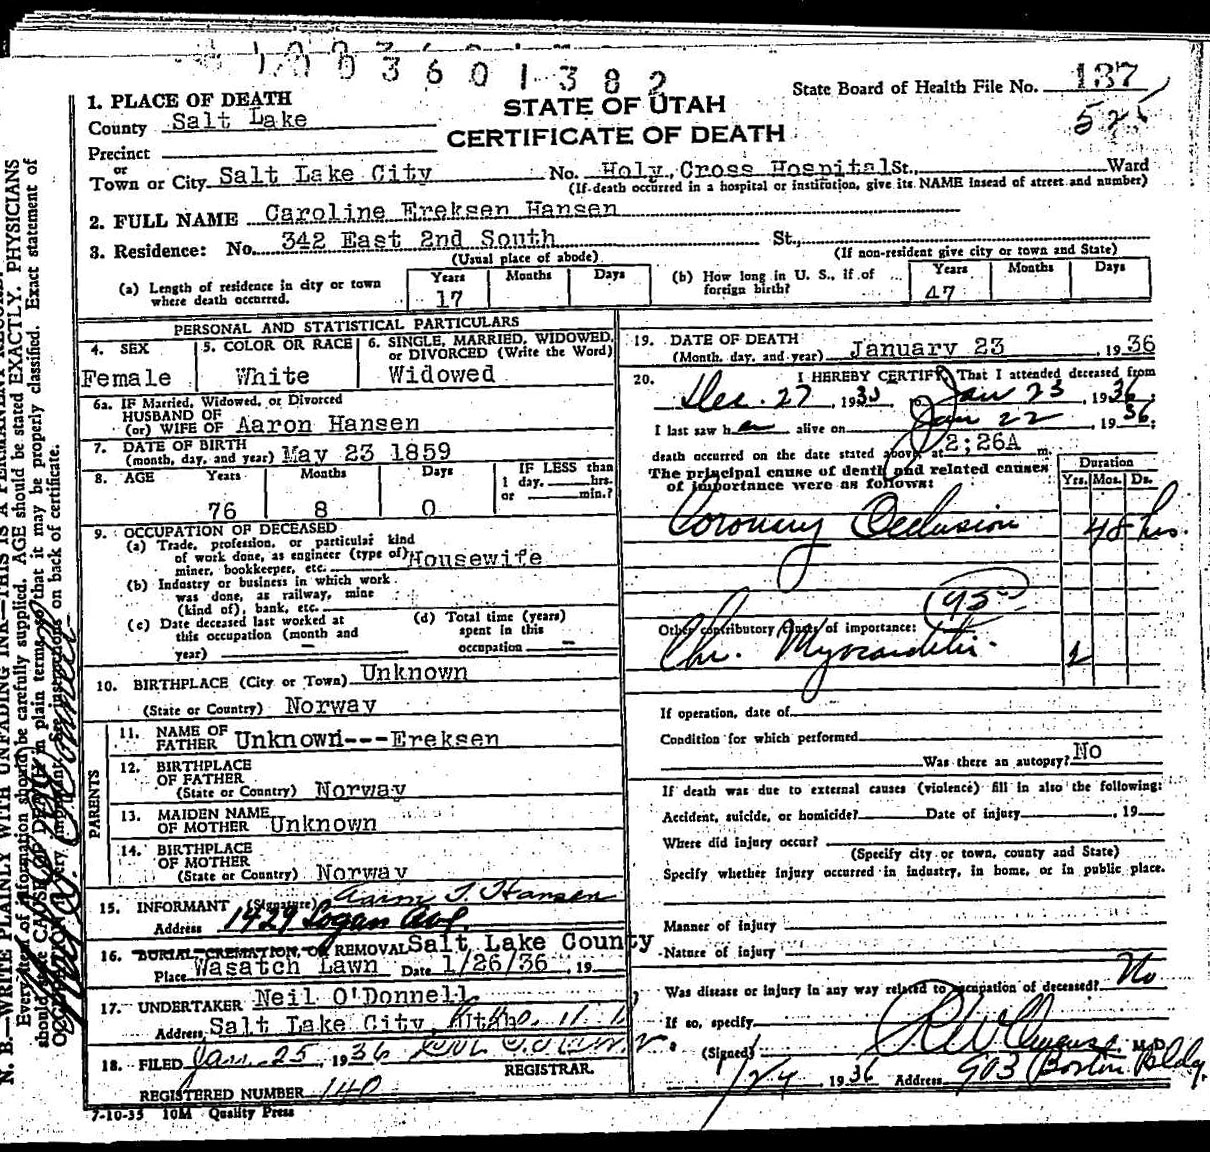 1003601382
State Board of Health File No. 137
52
STATE OF UTAH
CERTIFICATE OF DEATH
1. PLACE OF DEATH
County Salt Lake
Precinct
or
Town or City Salt Lake City No. Holy Cross Hospital St., Ward
(If death occurred in a hospital or institution, give its NAME insead of street and number)
2. FULL NAME Caroline Ereksen Hansen
3. Residence: No. 342 East 2nd South St.,
(Usual place of abode) (If non-resident give city or town and State)
(a) Length of residence in city or town where death occurred. Years 17 Months Days
(b) How long in U. S., if of foreign birth? Years 47 Months Days
PERSONAL AND STATISTICAL PARTICULARS
4. SEX Female
5. COLOR OR RACE White
6. SINGLE, MARRIED, WIDOWED, or DIVORCED (Write the Word) Widowed
6a. IF Married, Widowed, or Divorced
HUSBAND OF
(or) WIFE OF Aaron Hansen
7. DATE OF BIRTH
(month, day, and year) May 23 1859
8. AGE Years 76 Months 8 Days 0 IF LESS than 1 day, hrs. or min.?
9. OCCUPATION OF DECEASED
(a) Trade, profession, or particular kind
of work done, as engineer (type of)
miner, bookkeeper, etc. Housewife
(b) Industry or business in which work
was done, as railway, mine
(kind of), bank, etc.
(c) Date deceased last worked at
this occupation (month and
year) —
(d) Total time (years)
spent in this
occupation —
10. BIRTHPLACE (City or Town) Unknown
(State or Country) Norway
PARENTS
11. NAME OF
FATHER Unknown---Ereksen
12. BIRTHPLACE
OF FATHER
(State or Country) Norway
13. MAIDEN NAME
OF MOTHER Unknown
14. BIRTHPLACE
OF MOTHER
(State or Country) Norway
15. INFORMANT (Signature) Aaron T. Hansen
Address 1429 Logan Ave.
16. BURIAL CREMATION, OR REMOVAL Salt Lake County
Place Wasatch Lawn Date 1/26/36, 19
17. UNDERTAKER Neil O'Donnell
Address Salt Lake City, Utah
18. FILED Jan. 25 1936
REGISTRAR.
REGISTERED NUMBER 140
7-10-35 10M Quality Press
19. DATE OF DEATH
(Month, day, and year) January 23, 1936
20. I HEREBY CERTIFY, That I attended deceased from
Dec. 27, 1935 to Jan 23, 1936;
I last saw her alive on Jan 22, 1936;
death occurred on the date stated above, at 2;26A m.
The principal cause of death and related causes
of importance were as follows:
Duration
Yrs. Mos. Ds.
Coronary Occlusion 48 hrs.
Other contributory causes of importance:
Chr. Myocarditis.
If operation, date of
Condition for which performed
Was there an autopsy? No
If death was due to external causes (violence) fill in also the following:
Accident, suicide, or homicide? Date of injury , 19
Where did injury occur?
(Specify city or town, county and State)
Specify whether injury occurred in industry, in home, or in public place.
Manner of injury
Nature of injury
Was disease or injury in any way related to occupation of deceased? No
If so, specify
(Signed) M.D.
1/24 1936 Address 903 Boston Bldg.
N. B.—WRITE PLAINLY WITH UNFADING INK—THIS IS A PERMANENT RECORD.
Every item of information should be carefully supplied. AGE should be stated EXACTLY. PHYSICIANS
should state CAUSE OF DEATH in plain terms, so that it may be properly classified. Exact statement of
OCCUPATION is very important. See instructions on back of certificate.